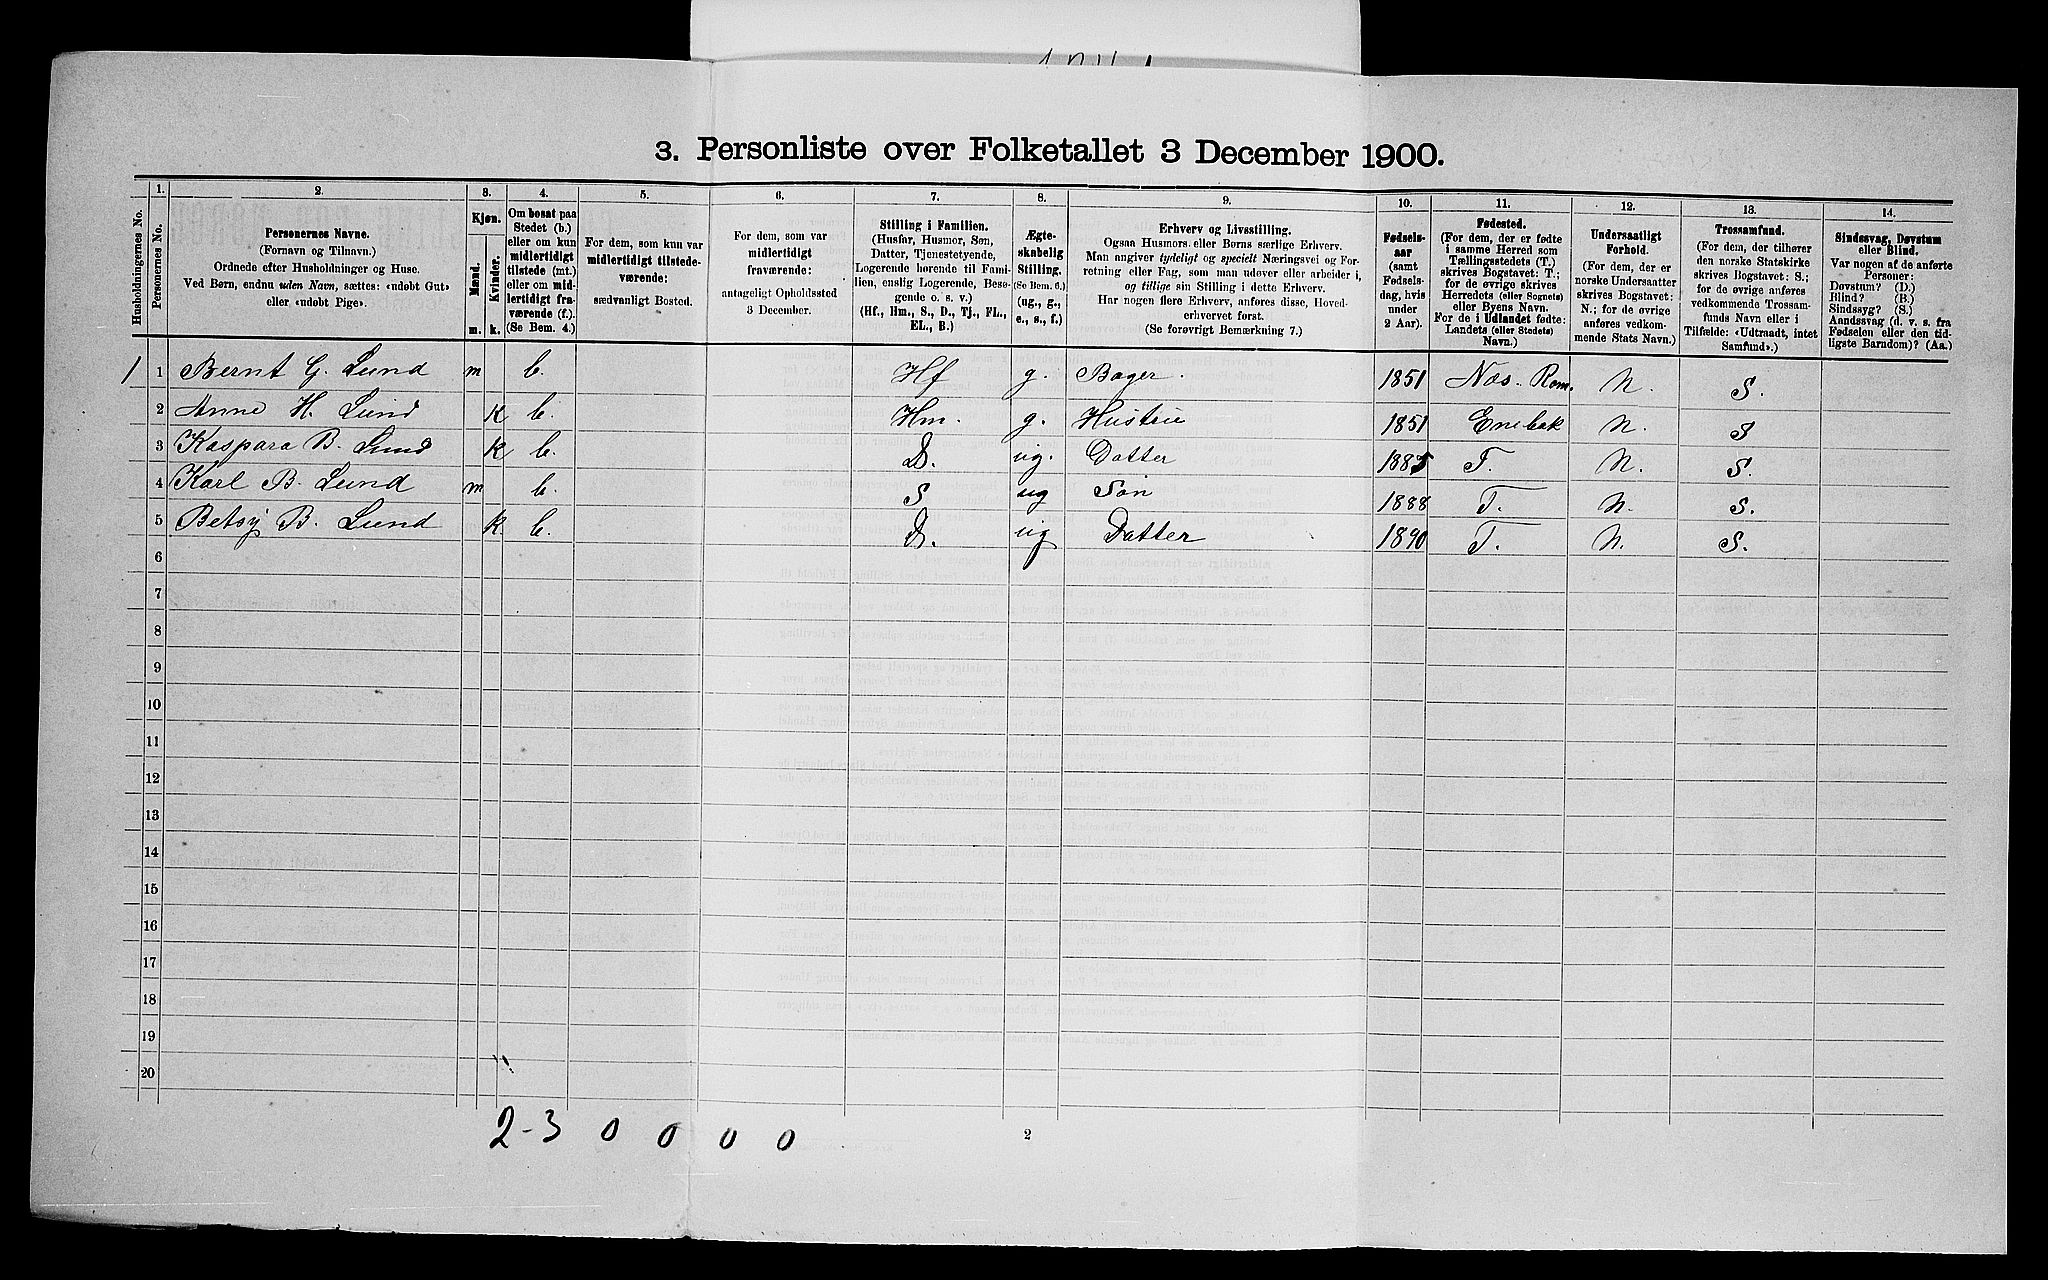 3. Personliste over Folketallet 3 December 1900.
Husholdningernes No.
1.
Personernes No.
2.
Personernes Navne.
(Fornavn og Tilnavn.)
Ordnede efter Husholdninger og Huse.
Ved Børn, endnu uden Navn, sættes: «udøbt Gut»
eller «udøbt Pige».
3.
Kjøn.
Mænd.
Kvinder.
m. k.
4.
Om bosat paa
Stedet (b.)
eller om kun
midlertidigt
tilstede (mt.)
eller om mid-
lertidigt fra-
værende (f.).
(Se Bem. 4.)
5.
For dem, som kun var
midlertidigt tilstede-
værende:
sædvanligt Bosted.
6.
For dem, som var
midlertidigt
fraværende:
antageligt Opholdssted
3 December.
7.
Stilling i Familien.
(Husfar, Husmor, Søn,
Datter, Tjenestetyende,
Logerende hørende til Fami-
lien, enslig Logerende, Besø-
gende o. s. v.)
(Hf., Hm., S., D., Tj., FL.,
EL., B.)
8.
Ægte-
skabelig
Stilling.
(Se Bem. 6.)
(ug., g.,
e., s., f.)
9.
Erhverv og Livsstilling.
Ogsaa Husmors eller Børns særlige Erhverv.
Man angiver tydeligt og specielt Næringsvei og For-
retning eller Fag, som man udøver eller arbeider i,
og tillige sin Stilling i dette Erhverv.
Har nogen flere Erhverv, anføres disse, Hoved-
erhvervet først.
(Se forøvrigt Bemærkning 7.)
10.
Fødsels-
aar
(samt
Fødsels-
dag, hvis
under
2 Aar).
11.
Fødested.
(For dem, der er fødte
i samme Herred som
Tællingsstedets (T.)
skrives Bogstavet: T.;
for de øvrige skrives
Herredets (eller Sognets)
eller Byens Navn.
For de i Udlandet fødte:
Landets (eller Stedets)
Navn.)
12.
Undersaatligt
Forhold.
(For dem, der er
norske Undersaatter
skrives Bogstavet:
N.; for de øvrige
anføres vedkom-
mende Stats Navn.)
13.
Trossamfund.
(For dem, der tilhører
den norske Statskirke
skrives Bogstavet: S.;
for de øvrige anføres
vedkommende Trossam-
funds Navn eller i
Tilfælde: «Udtraadt, intet
Samfund».)
14.
Sindssvag, Døvstum
eller Blind.
Var nogen af de anførte
Personer:
Døvstum? (D.)
Blind? (B.)
Sindssyg? (S.)
Aandssvag (d. v. s. fra
Fødselen eller den tid-
ligste Barndom)? (Aa.)
1 1 Bernt G. Lund m b. Hf g. Bager. 1851 Næs. Rom. N. S.
2 Anne H. Lund k b. Hm. g. Hustru 1851 Enebak N. S
3 Kaspara B. Lund k b. D. ug. Datter 1885 T. N. S.
4 Karl B. Lund m b. S ug Søn 1888 T. N. S.
5 Betsy B. Lund k b. D. ug Datter 1890 T. N. S.
6
7
8
9
10
11
12
13
14
15
16
17
18
19
20
2-3 0 0 0 0
2